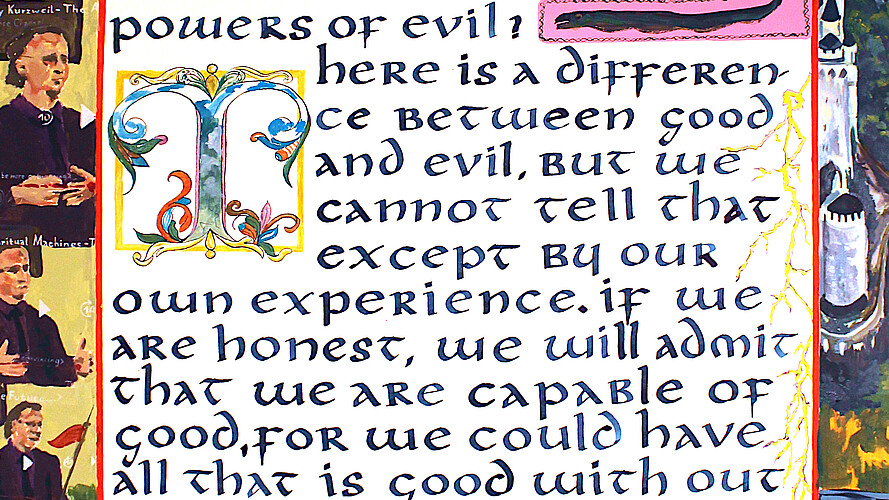 y Kurzweil-The A
powers of evil?
There is a differen-
ce between good
and evil, but we
cannot tell that
except by our
own experience. if we
are honest, we will admit
that we are capable of
good, for we could have
all that is good with out
ritual Machines-T
e Future